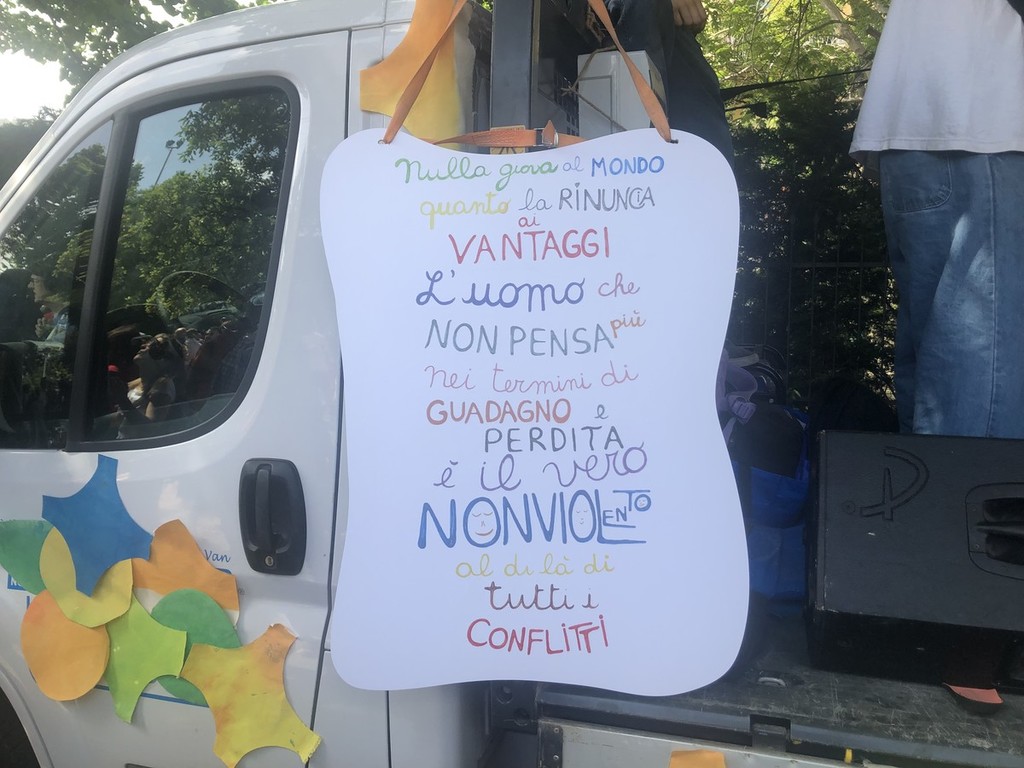 Nulla giova al MONDO
quanto la RINUNCIA
ai
VANTAGGI
L'uomo che
NON PENSA più
nei termini di
GUADAGNO e
PERDITA
è il vero
NONVIOLENTO
al di là di
tutti i
CONFLITTI
Van